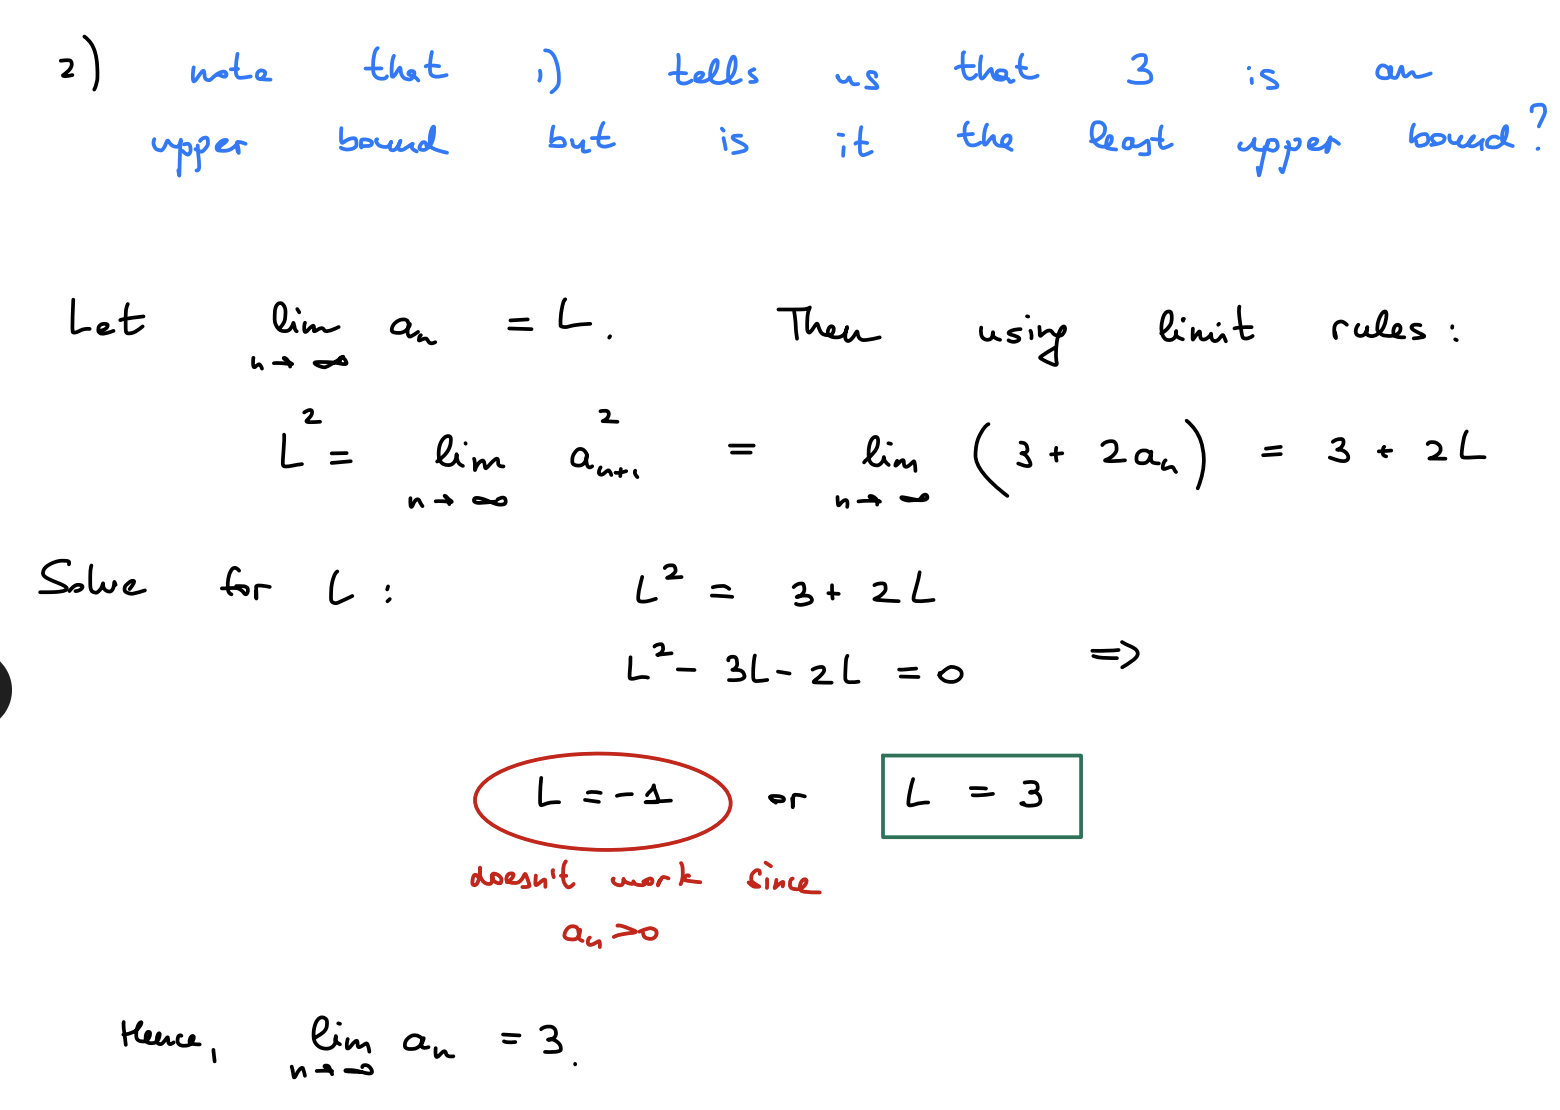 2) note that 1) tells us that 3 is an
upper bound but is it the least upper bound?
Let lim n→∞ aₙ = L. Then using limit rules:
L² = lim n→∞ aₙ₊₁² = lim n→∞ (3 + 2aₙ) = 3 + 2L
Solve for L: L² = 3 + 2L
L² - 3L - 2L = 0 ⇒
L = -1 or L = 3
doesn't work since
aₙ > 0
Hence, lim n→∞ aₙ = 3.